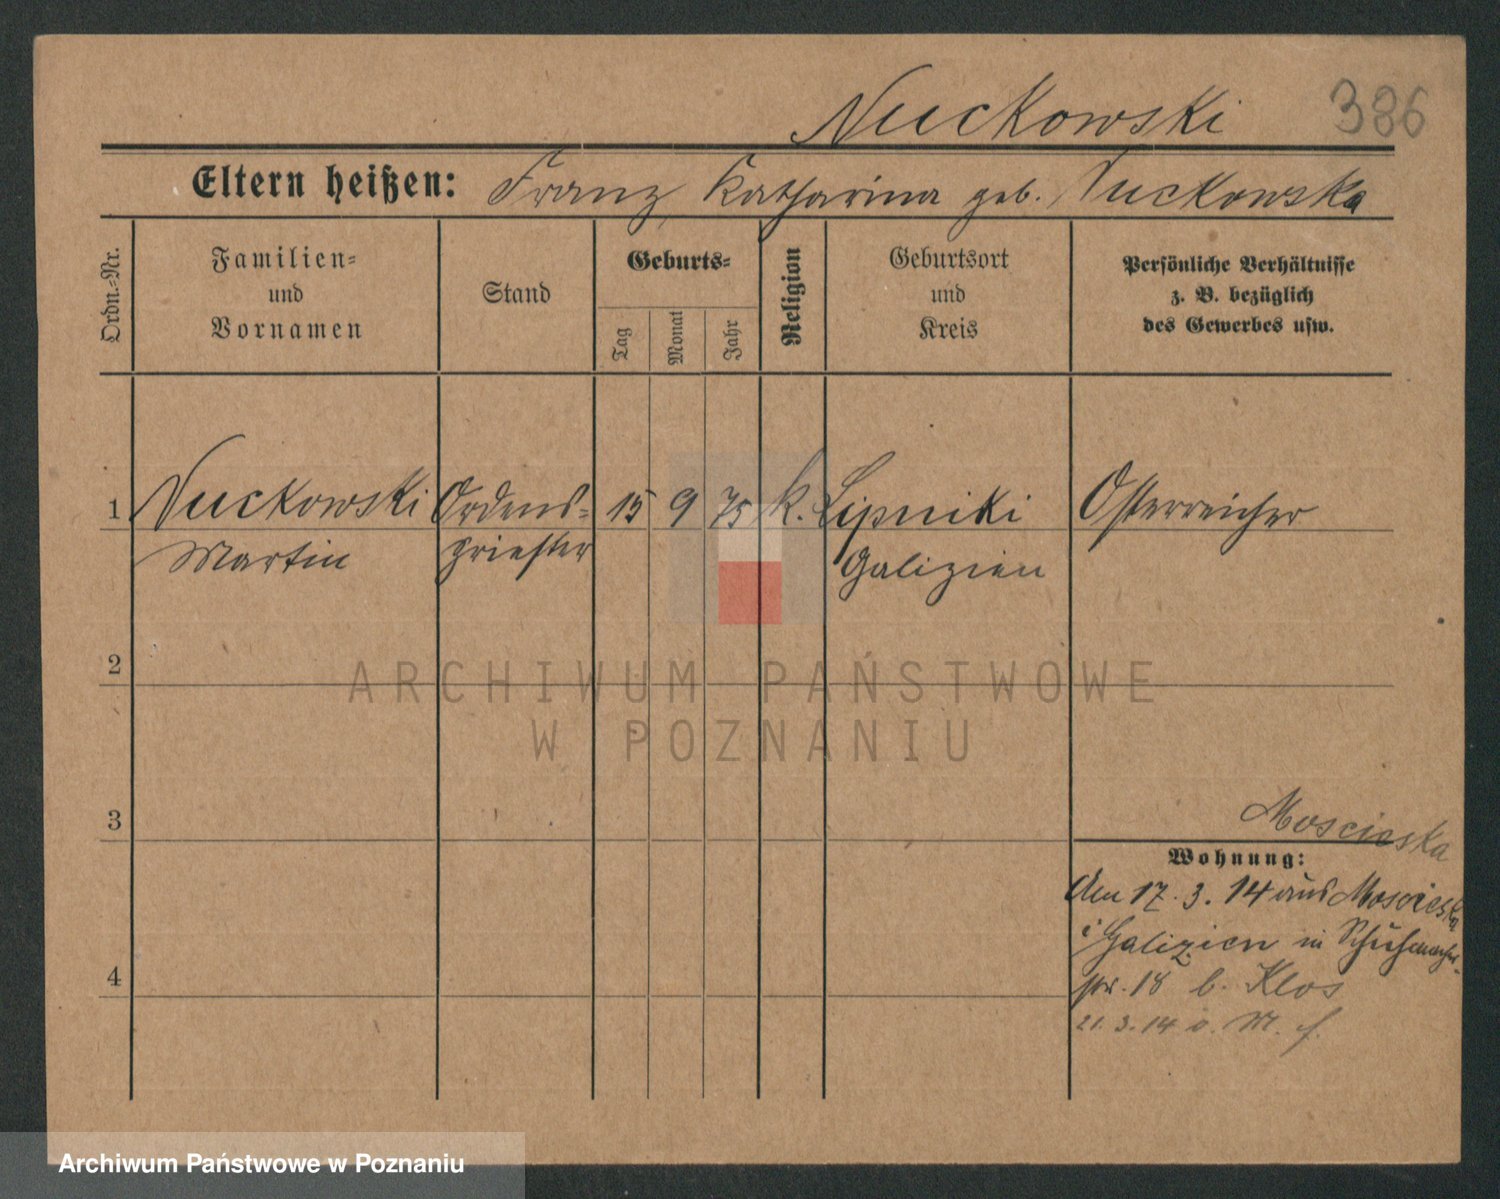 Nuckowski
386
Eltern heißen: Franz, Katharina geb. Nuckowska
Ordn.-Nr.
Familien-
und
Vornamen
Stand
Geburts-
Tag
Monat
Jahr
Religion
Geburtsort
und
Kreis
Persönliche Verhältnisse
z. B. bezüglich
des Gewerbes usw.
1 Nuckowski Ordens- 15 9 75 k. Lipniki Österreicher
Martin priester Galizien
2
ARCHIWUM PAŃSTWOWE
W POZNANIU
3
Moscieska
Wohnung:
Am 17.3.14 aus Moscieska
i Galizien in Schuhmacher-
4
str. 18 b. Klos
21.3.14 v. M. f.
Archiwum Państwowe w Poznaniu